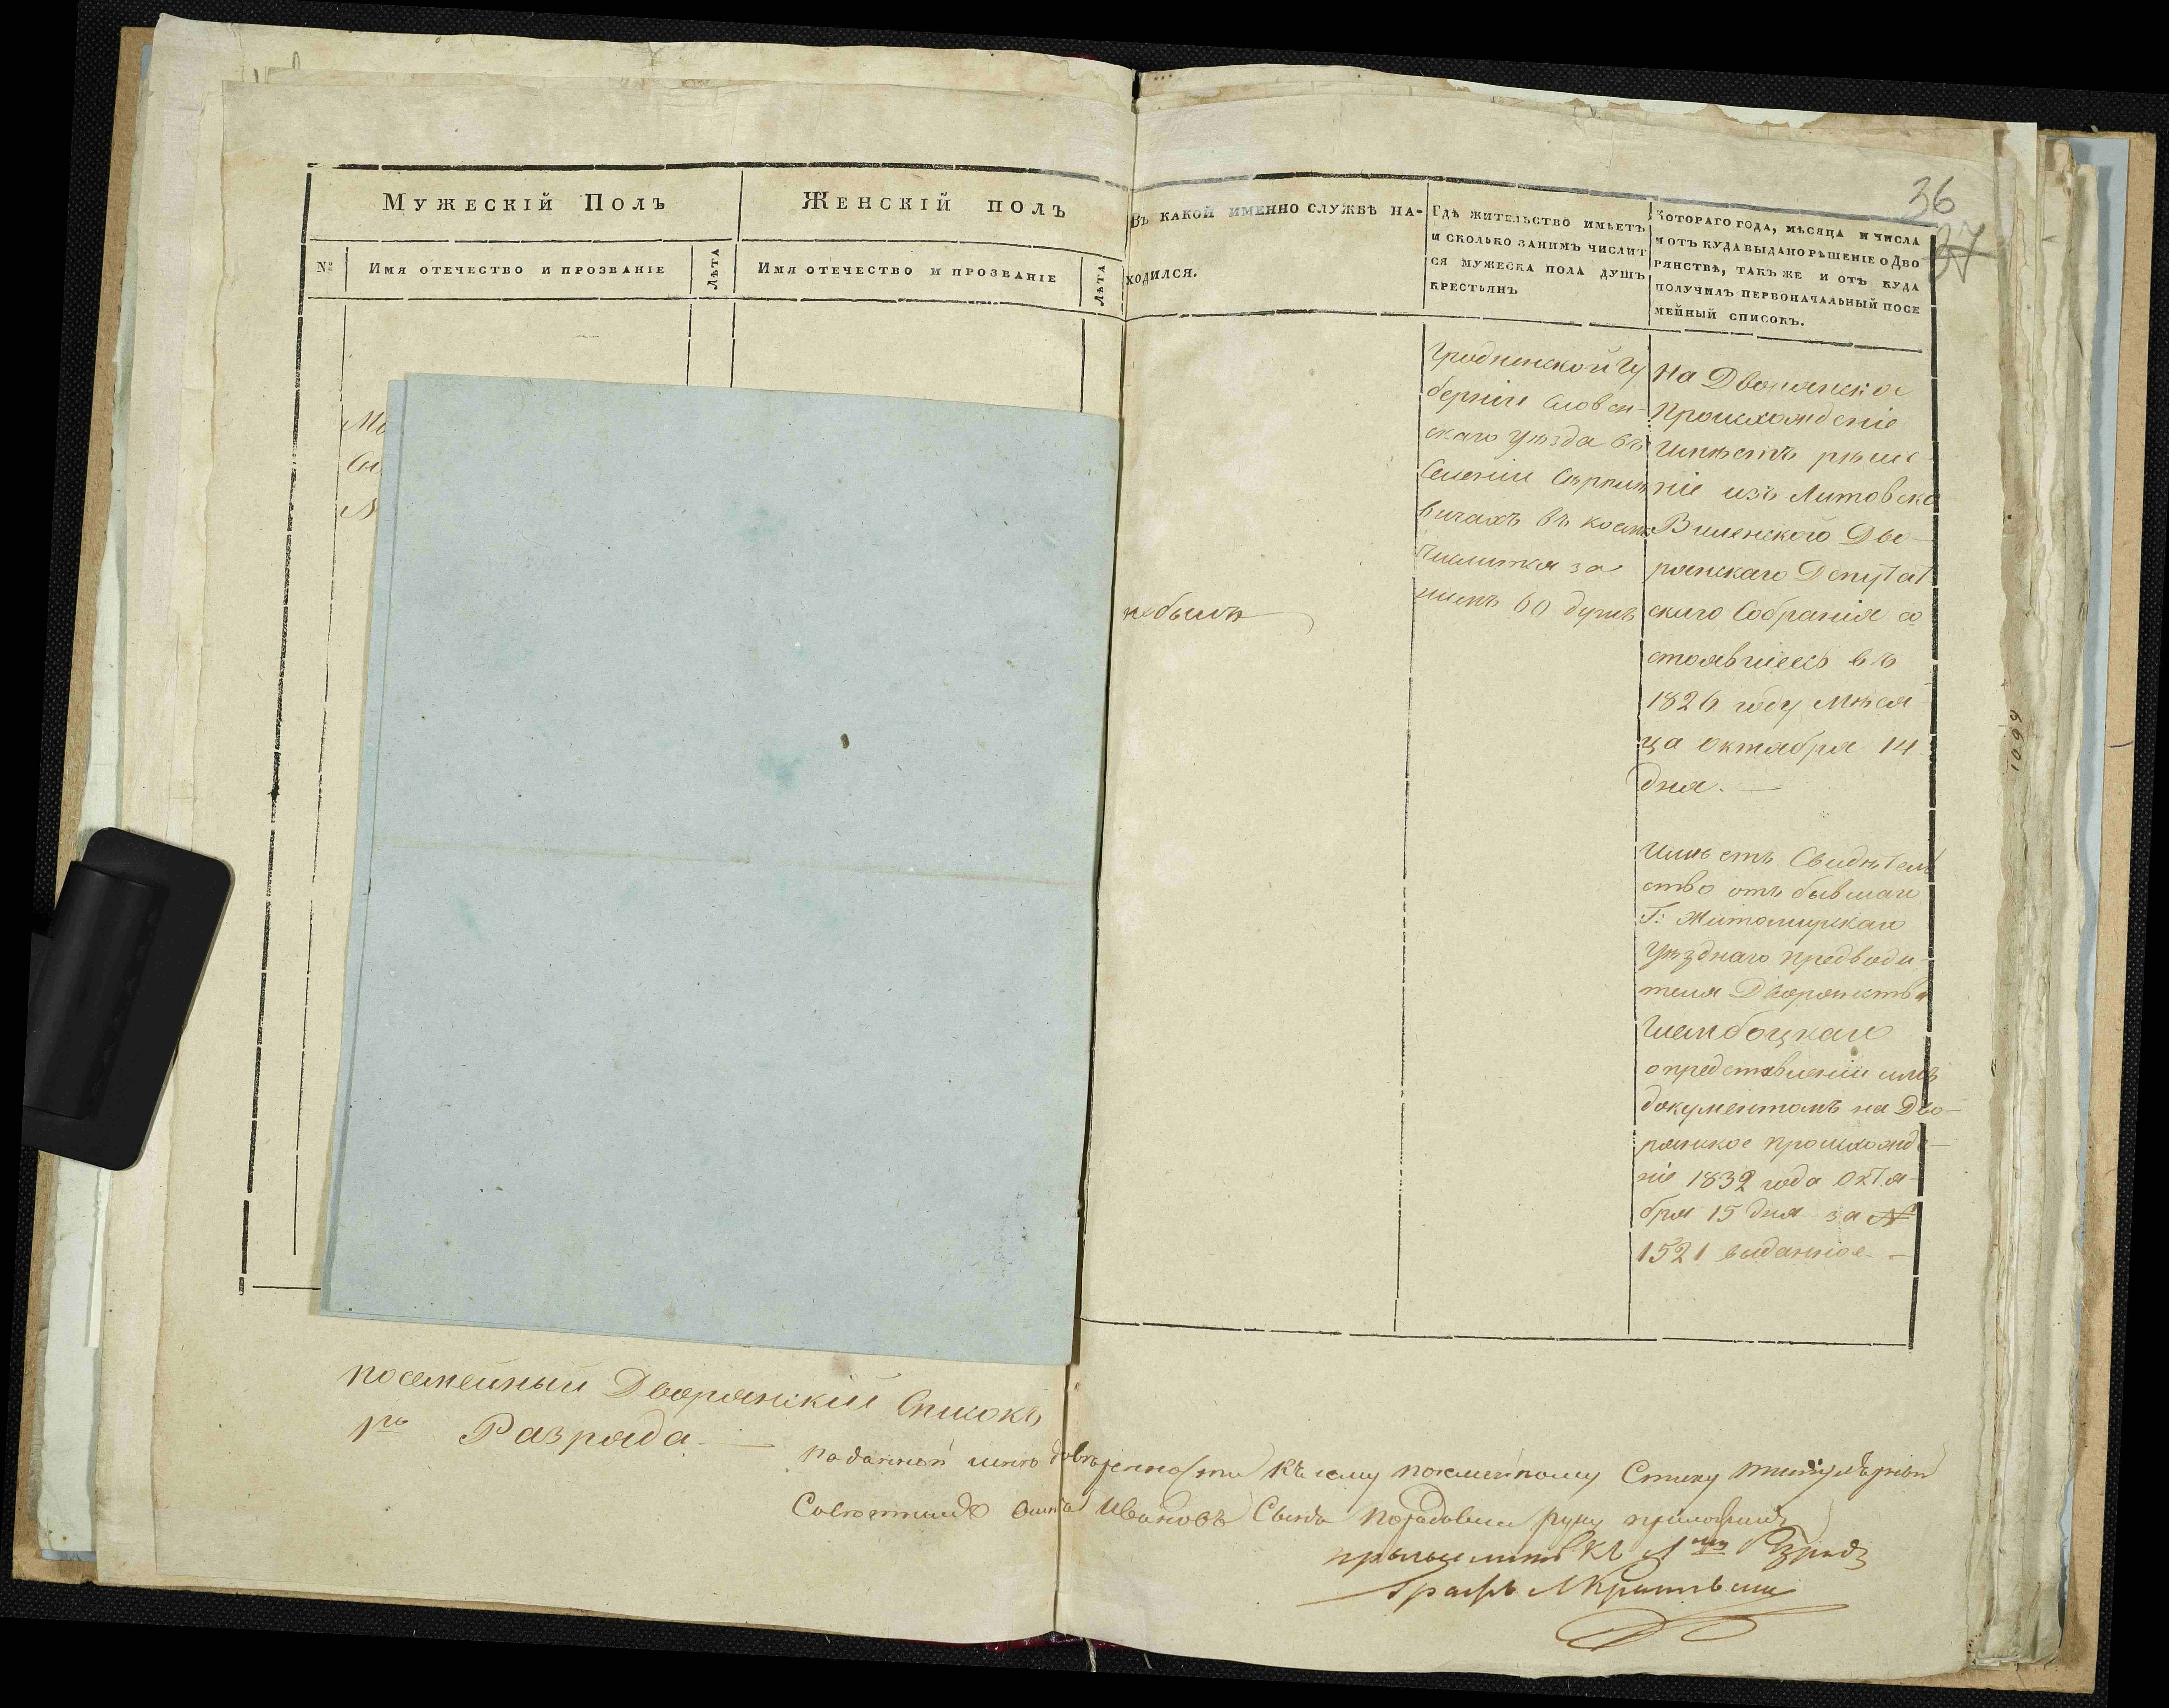 36
37
Мужескій Полъ
Женскій полъ
Въ какой именно службѣ на-
ходился.
Гдѣ жительство имѣетъ
и сколько занимъ числит
ся мужеска пола душъ
крестьянъ
Котораго года, мѣсяца и числа
и отъ куда выдано рѣшеніе о Дво
рянствѣ, такъ же и отъ куда
получилъ первоначальный посе
мейный списокъ.
№
Имя отечество и прозваніе
Лѣта
Имя отечество и прозваніе
Лѣта
не былъ
Гродненской Гу
берніи
скаго уѣзда въ
Селеніи
вичахъ въ
числится за
нимъ 60 душъ
На Дворянское
Происхожденіе
имѣетъ рѣше-
ніе изъ Литовско
Виленского Дво-
рянскаго Депутат
скаго Собранія со
стоявшееся въ
1826 году Мѣся
ца Октября 14
дня.
Имѣетъ Свидѣтель
ство отъ бывшаго
Г: Житомирскаго
Уѣзднаго предводи
теля Дворянства
опредставленіи имъ
документомъ на Дво-
рянское происхожде-
ніе 1832 года Октя-
бря 15 дня за №
1521 выданное
1099
посемейный Дворянскій Списокъ
1го Разряда
поданной мнѣ довѣренности къ сему посемейному Списку титулярный
Совѣтникъ Ивановъ Сынъ руку приложилъ
къ 1му
Графъ